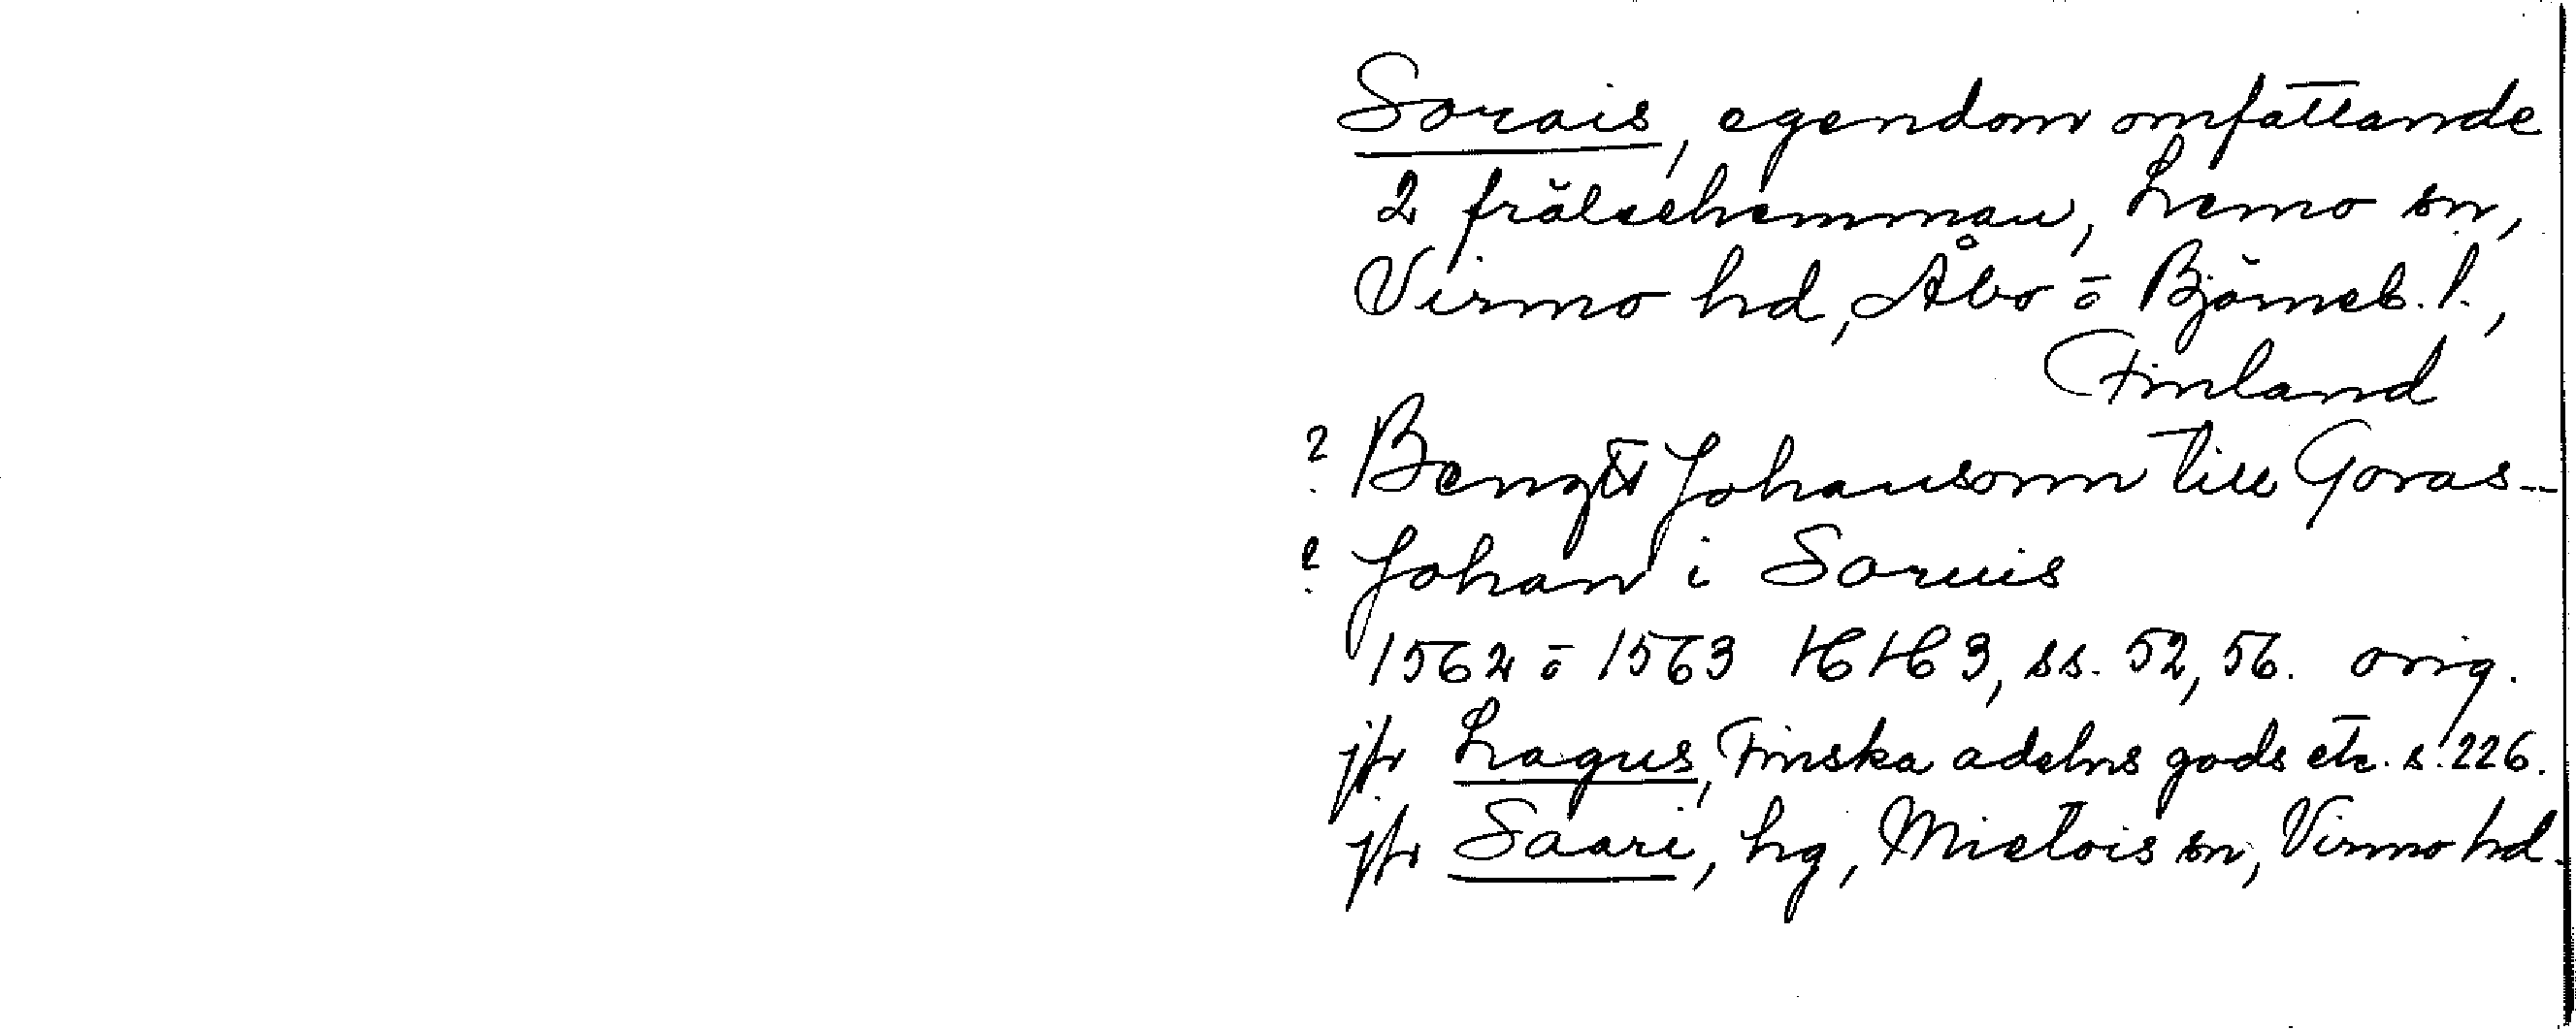 Sorais, egendom omfattande
2 frälsehemman, Lemo sn,
Virmo hd, Åbo o Björneb. l.,
Finland
? Bengt Johansonn till Goras--
? Johan i Soruis
1562 o 1563 HH 3, ss. 52, 56. orig.
jfr Lagus, Finska adelns gods etc. s. 226.
jfr Saari, hg, Mietois sn, Virmo hd.